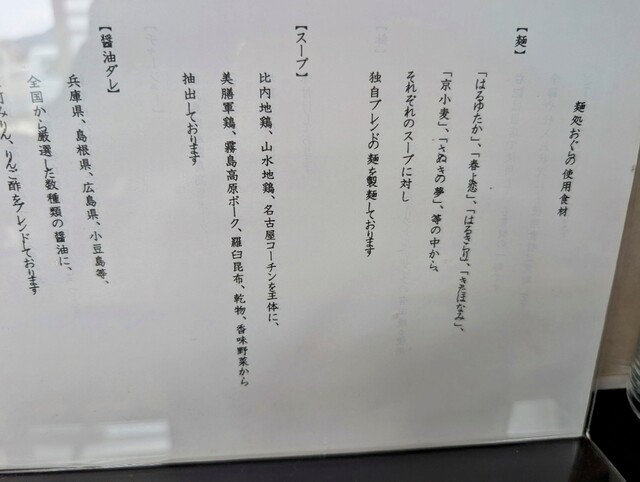 麺処おぐらの使用食材
【麺】
「はるゆたか」、「春よ恋」、「はるきらり」、「きたほなみ」、
「京小麦」、「さぬきの夢」、等の中から、
それぞれのスープに対し
独自ブレンドの麺を製麺しております
【スープ】
比内地鶏、山水地鶏、名古屋コーチンを主体に、
美膳軍鶏、霧島高原ポーク、羅臼昆布、乾物、香味野菜から
抽出しております
【醤油ダレ】
兵庫県、島根県、広島県、小豆島等、
全国から厳選した数種類の醤油に、
みりん、りんご酢をブレンドしております